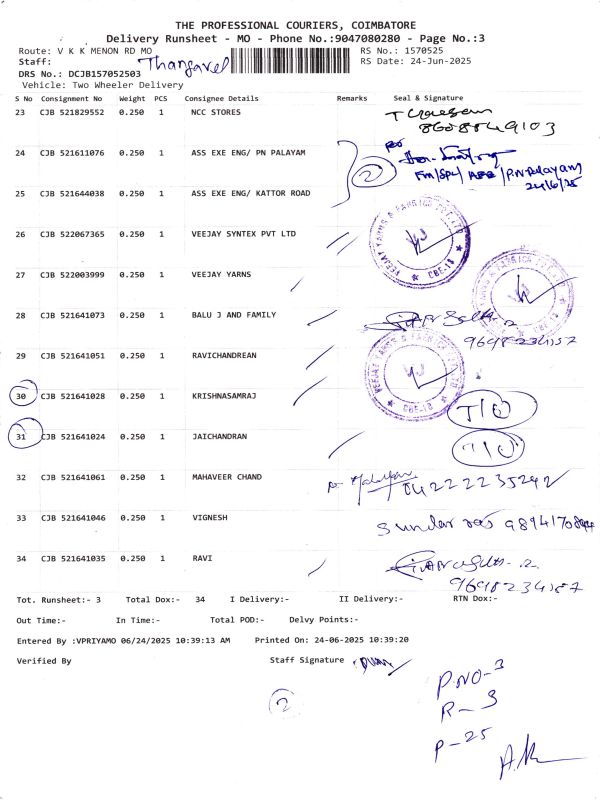 THE PROFESSIONAL COURIERS, COIMBATORE
Delivery Runsheet - MO - Phone No.:9047080280 - Page No.:3
Route: V K K MENON RD MO RS No.: 1570525
Staff: Thangavel RS Date: 24-Jun-2025
DRS No.: DCJB157052503
Vehicle: Two Wheeler Delivery
S No Consignment No Weight PCS Consignee Details Remarks Seal & Signature
23 CJB 521829552 0.250 1 NCC STORES
8608849103
24 CJB 521611076 0.250 1 ASS EXE ENG/ PN PALAYAM 2
P.N Palayam
24/6/25
25 CJB 521644038 0.250 1 ASS EXE ENG/ KATTOR ROAD
26 CJB 522067365 0.250 1 VEEJAY SYNTEX PVT LTD
VEEJAY YARNS & FABRICS CBE-18
27 CJB 522003999 0.250 1 VEEJAY YARNS
28 CJB 521641073 0.250 1 BALU J AND FAMILY
9698234157
29 CJB 521641051 0.250 1 RAVICHANDREAN
VEEJAY YARNS & FABRICS CBE-18
30 CJB 521641028 0.250 1 KRISHNASAMRAJ T/O
31 CJB 521641024 0.250 1 JAICHANDRAN T/O
32 CJB 521641061 0.250 1 MAHAVEER CHAND 04222235242
33 CJB 521641046 0.250 1 VIGNESH Sundar
34 CJB 521641035 0.250 1 RAVI
9698234157
Tot. Runsheet:- 3 Total Dox:- 34 I Delivery:- II Delivery:- RTN Dox:-
Out Time:- In Time:- Total POD:- Delvy Points:-
Entered By :VPRIYAMO 06/24/2025 10:39:13 AM Printed On: 24-06-2025 10:39:20
Verified By Staff Signature
2
P.NO-3
R-3
P-25